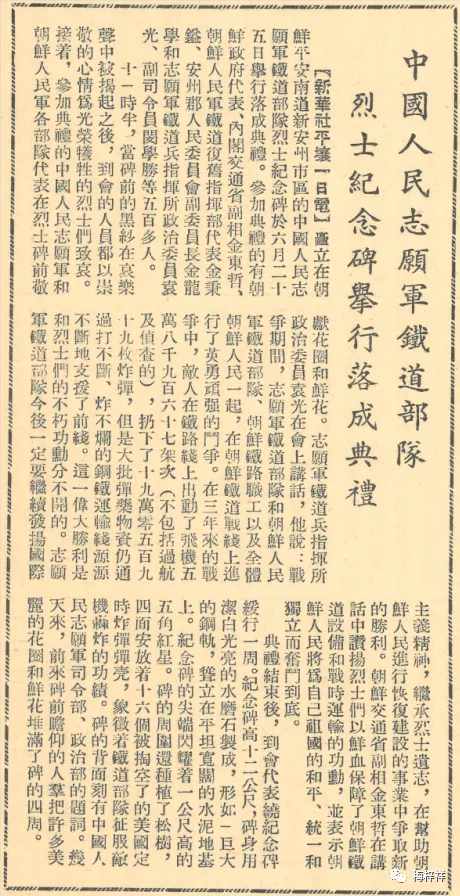 中國人民志願軍鐵道部隊
烈士紀念碑舉行落成典禮
【新華社平壤一日電】矗立在朝
鮮平安南道新安州市區的中國人民志
願軍鐵道部隊烈士紀念碑於六月二十
五日舉行落成典禮。參加典禮的有朝
鮮政府代表、內閣交通省副相金東哲、
朝鮮人民軍鐵道復舊指揮部代表金秉
鎰、安州郡人民委員會副委員長金龍
學和志願軍鐵道兵指揮所政治委員袁
光、副司令員閔學勝等五百多人。
十一時半，當碑前的黑紗在哀樂
聲中被揭起之後，到會的人員都以崇
敬的心情爲光榮犧牲的烈士們致哀。
接着，參加典禮的中國人民志願軍和
朝鮮人民軍各部隊代表在烈士碑前敬
獻花圈和鮮花。志願軍鐵道兵指揮所
政治委員袁光在會上講話，他說：戰
爭期間，志願軍鐵道部隊和朝鮮人民
軍鐵道部隊、朝鮮鐵路職工以及全體
朝鮮人民一起，在朝鮮鐵道戰綫上進
行了英勇頑強的鬥爭。在三年來的戰
爭中，敵人在鐵路綫上出動了飛機五
萬八千九百六十七架次（不包括過航
及偵查的），扔下了十九萬零五百九
十九枚炸彈，但是大批彈藥物資仍通
過打不斷、炸不爛的鋼鐵運輸綫源源
不斷地支援了前綫。這一偉大勝利是
和烈士們的不朽功勳分不開的。志願
軍鐵道部隊今後一定要繼續發揚國際
主義精神，繼承烈士遺志，在幫助朝
鮮人民進行恢復建設的事業中爭取新
的勝利。朝鮮交通省副相金東哲在講
話中讚揚烈士們以鮮血保障了朝鮮鐵
道設備和戰時運輸的功勳，並表示朝
鮮人民將爲自己祖國的和平、統一和
獨立而奮鬥到底。
典禮結束後，到會代表繞紀念碑
緩行一周。紀念碑高十二公尺，碑身用
潔白光亮的水磨石製成，形如一巨大
的鋼軌，聳立在平坦寬闊的水泥地基
上。紀念碑的尖端閃耀着一公尺高的
五角紅星。碑的周圍還種植了松樹，
四面安放着十六個被掏空了的美國定
時炸彈彈壳，象徵着鐵道部隊征服敵
機轟炸的功績。碑的背面刻有中國人
民志願軍司令部、政治部的題詞。幾
天來，前來碑前瞻仰的人羣把許多美
麗的花圈和鮮花堆滿了碑的四周。
梅梓祥